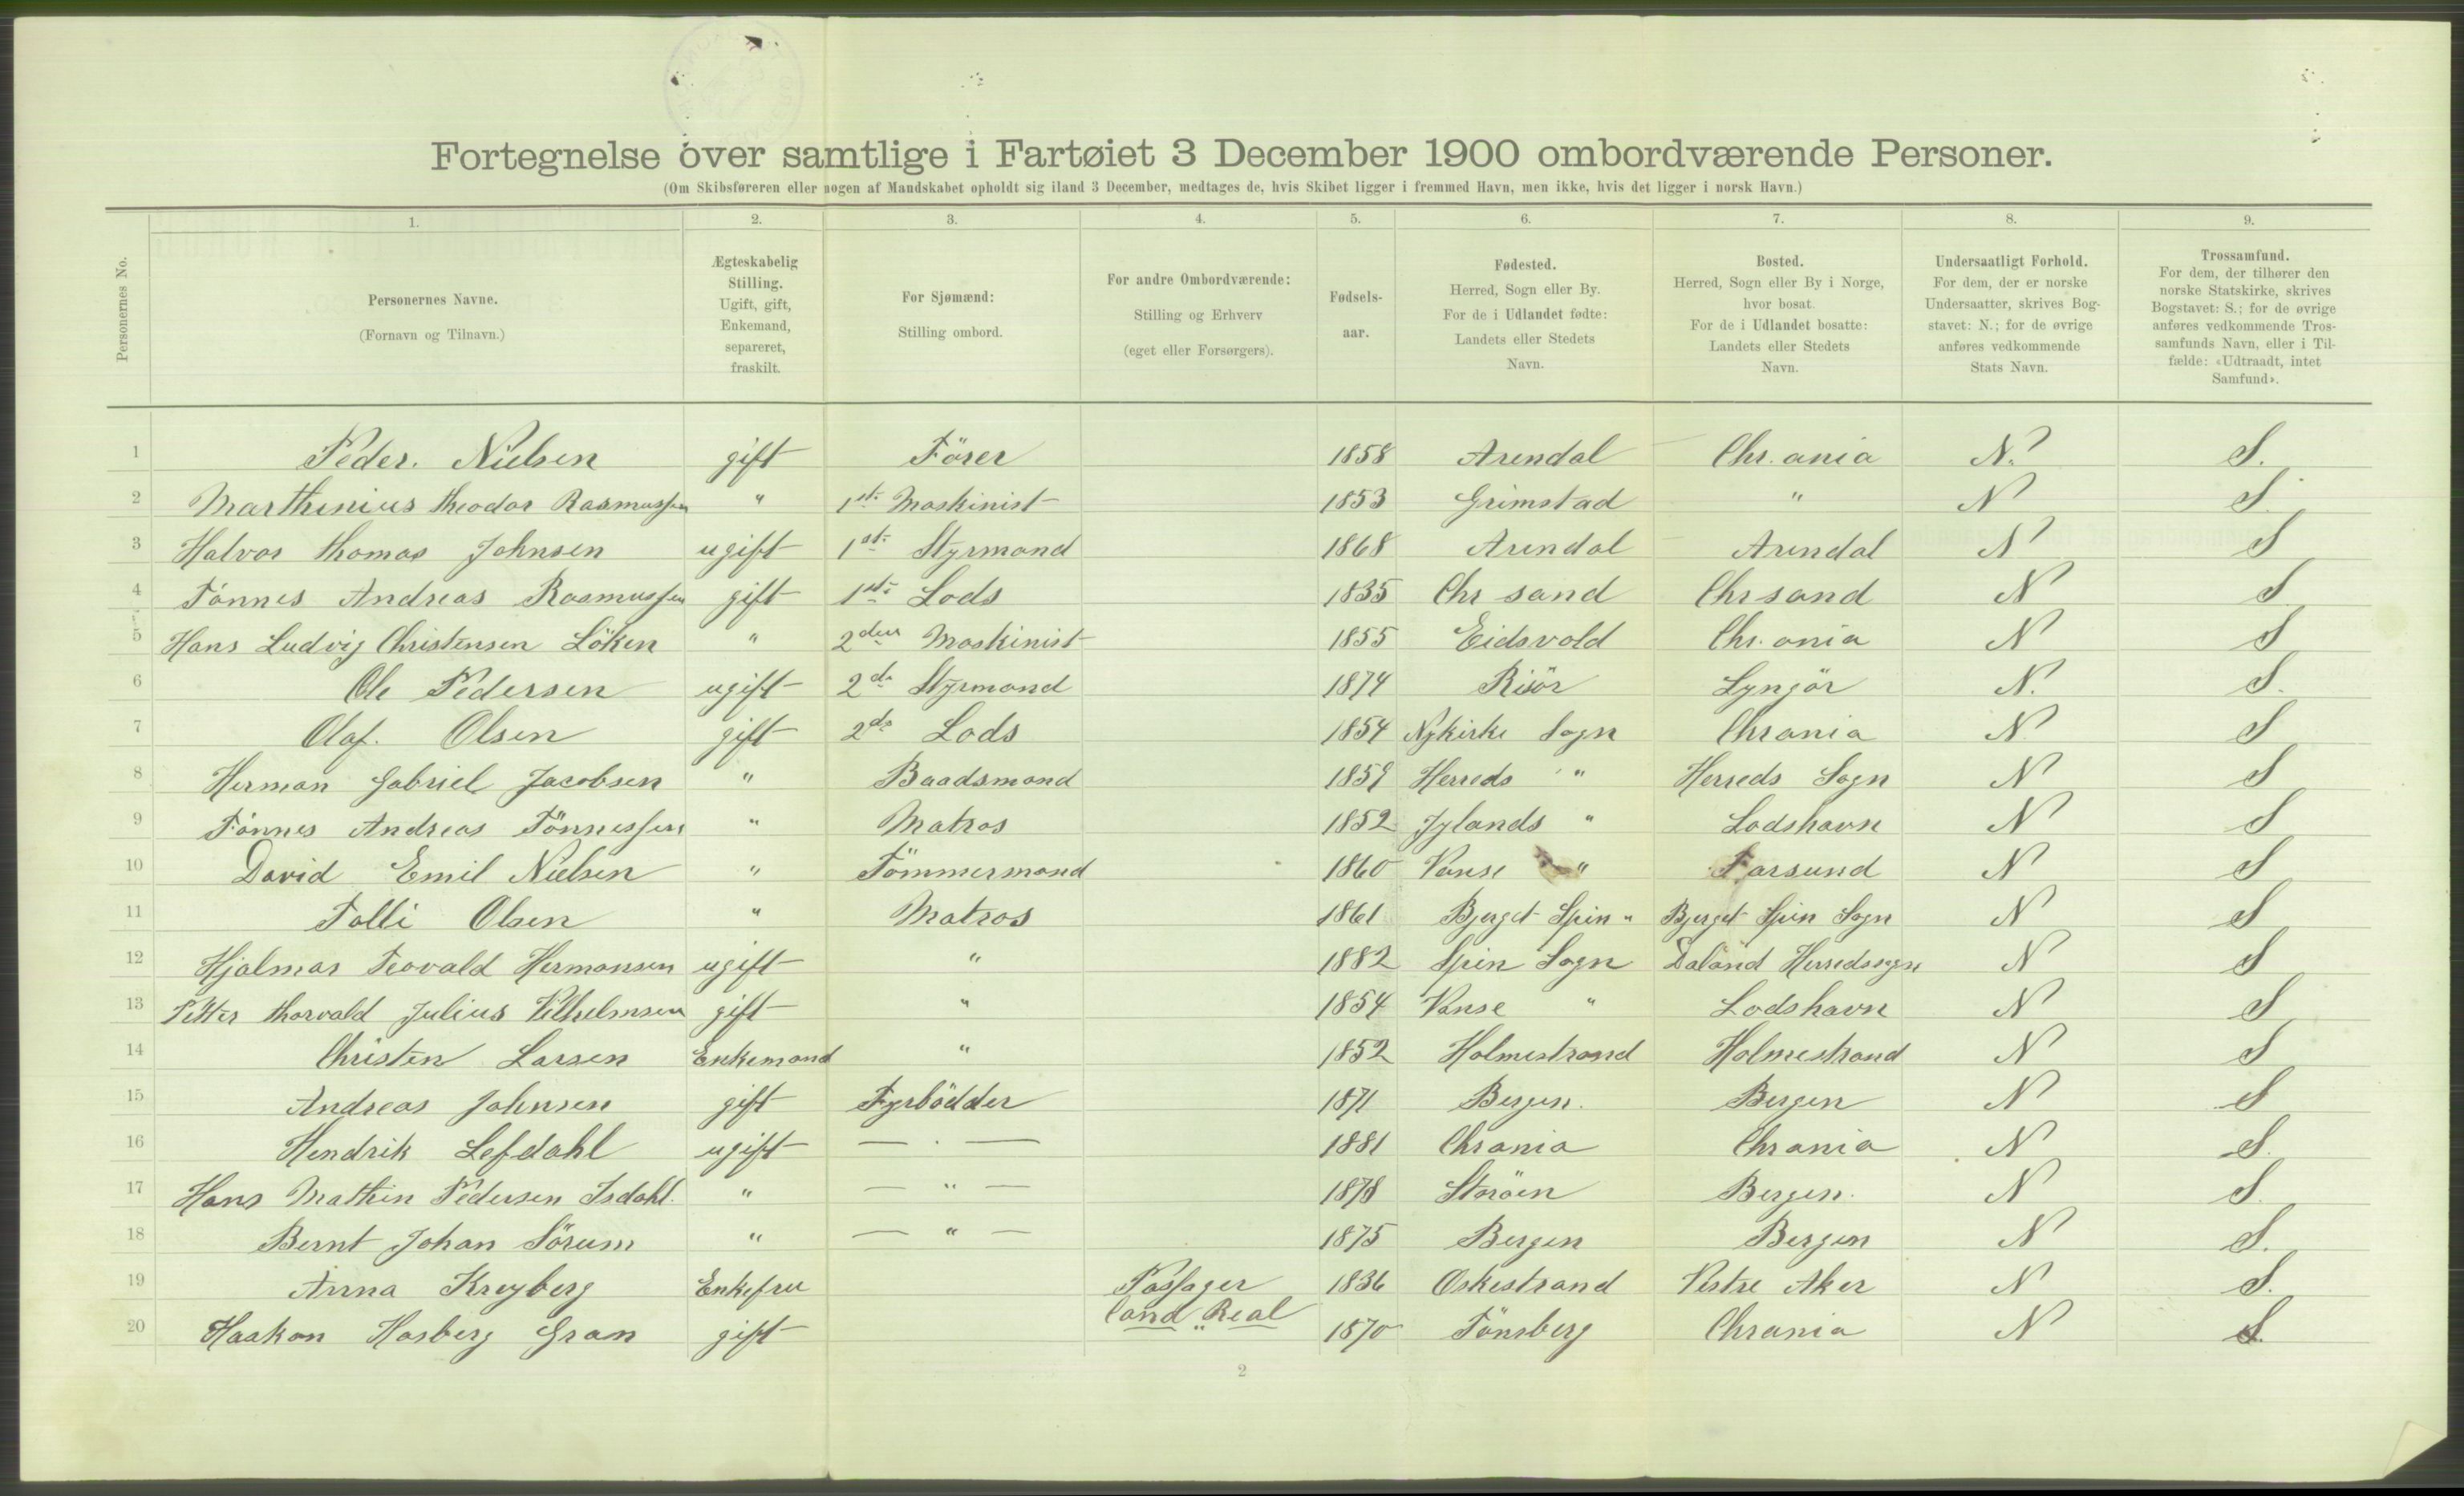 Fortegnelse over samtlige i Fartøiet 3 December 1900 ombordværende Personer.
(Om Skibsføreren eller nogen af Mandskabet opholdt sig iland 3 December, medtages de, hvis Skibet ligger i fremmed Havn, men ikke, hvis det ligger i norsk Havn.)
Personernes No.
1. 2. 3. 4. 5. 6. 7. 8. 9.
Personernes Navne.
(Fornavn og Tilnavn.)
Ægteskabelig
Stilling.
Ugift, gift,
Enkemand,
separeret,
fraskilt.
For Sjømænd:
Stilling ombord.
For andre Ombordværende:
Stilling og Erhverv
(eget eller Forsørgers).
Fødsels-
aar.
Fødested.
Herred, Sogn eller By.
For de i Udlandet fødte:
Landets eller Stedets
Navn.
Bosted.
Herred, Sogn eller By i Norge,
hvor bosat.
For de i Udlandet bosatte:
Landets eller Stedets
Navn.
Undersaatligt Forhold.
For dem, der er norske
Undersaatter, skrives Bog-
stavet: N.; for de øvrige
anføres vedkommende
Stats Navn.
Trossamfund.
For dem, der tilhører den
norske Statskirke, skrives
Bogstavet: S.; for de øvrige
anføres vedkommende Tros-
samfunds Navn, eller i Til-
fælde: «Udtraadt, intet
Samfund».
1 Peder. Nielsen gift Förer 1858 Arendal Chr. ania N. S.
2 Marthinius Theodor Rasmussen " 1ste Maskinist 1853 Grimstad " N S.
3 Halvor Thomas Johnsen ugift 1ste Styrmand 1868 Arendal Arendal N S
4 Tönnes Andreas Rasmussen gift 1ste Lods 1835 Chr sand Chrsand N S
5 Hans Ludvig Christensen Löken " 2den Maskinist 1855 Eidsvold Chr. ania N S
6 Ole Pedersen ugift 2de Styrmand 1874 Risör Lyngör N. S.
7 Olaf. Olsen gift 2de Lods 1854 Nykirke Sogn Chrania N S
8 Herman Gabriel Jacobsen " Baadsmand 1859 Herreds " Herreds Sogn N S
9 Tönnes Andreas Tönnessen " Matros 1852 Jylands " Lodshavn N S
10 David Emil Nielsen " Tömmermand 1860 Vanse " Farsund N S
11 Tolli Olsen " Matros 1861 Bjerget Spin " Bjerget Spin Sogn N S
12 Hjalmar Teovald Hermansen ugift " 1882 Spin Sogn Daland Herredsogn N S
13 Petter Thorvald Julius Vilhelmsen gift " 1854 Vanse " Lodshavn N S
14 Christen Larsen Enkemand " 1852 Holmestrand Holmestrand N S
15 Andreas Johnsen gift Fyrbödder 1871 Bergen. Bergen N S
16 Hendrik Lefdahl ugift — . — 1881 Chrania Chrania N S.
17 Hans Mathin Pedersen Isdahl. " — " — 1878 Storöen Bergen. N S.
18 Bernt Johan Sörum " — " — 1875 Bergen Bergen N S.
19 Anna Kreyberg Enkefru Passager 1836 Oskestrand Vestre Aker N S.
20 Haakon Hasberg Gran gift Cand. Real 1870 Tönsberg Chrania N S.
2